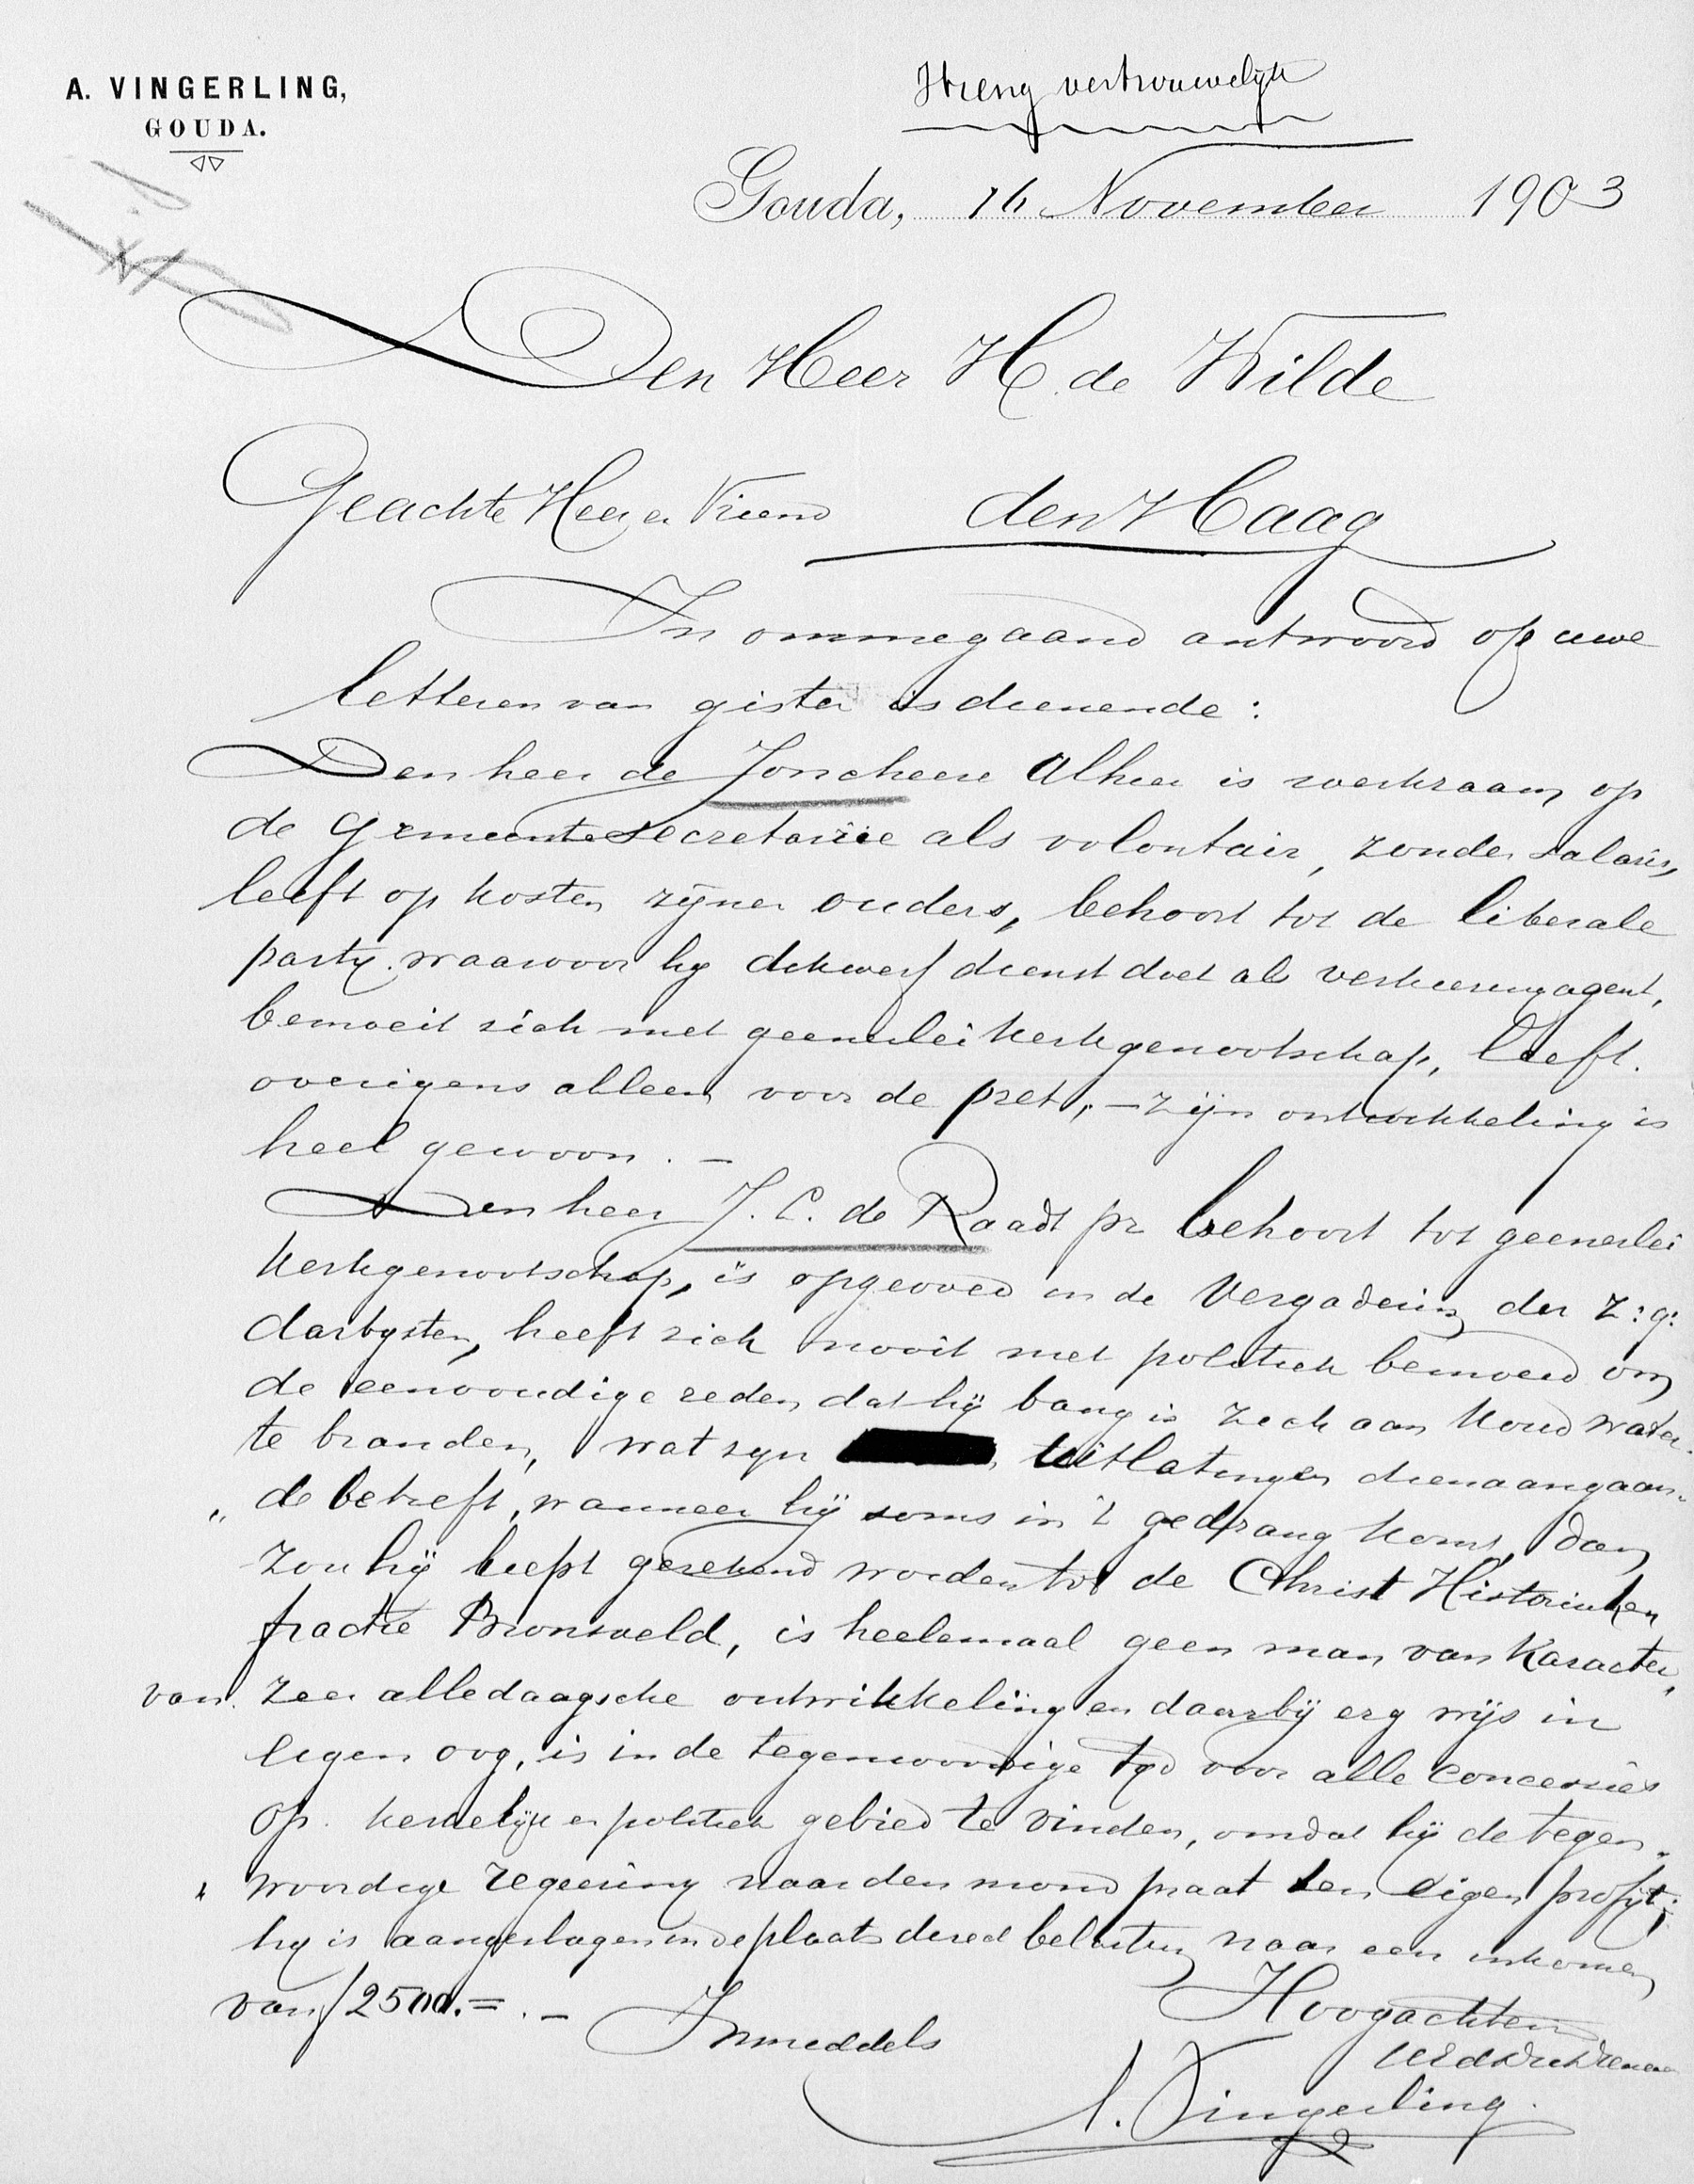 A. VINGERLING,
GOUDA.
Streng vertrouwelijk
Gouda, 16 November 1903
Den Heer H. de Wilde
Geachte Heer en Vriend den Haag
In ommegaand antwoord op uwe
letteren van gister is dienende:
Den heer de Joncheere Alhier is werkzaam op
de Gemeentesecretarie als volontair, zonder salaris,
leeft op kosten zijner ouders, behoort tot de liberale
party. waarvoor hy dikwerf dienst doet als verkiezingagent,
bemoeit zich met geenerlei kerkgenootschap, leeft.
overigens alleen voor de pret, – zijn ontwikkeling is
heel gewoon. –
Den heer J. C. de Raadt pr behoort tot geenerlei
Kerkgenootschap, is opgevoed in de Vergadering der z:g:
darbysten, heeft zich nooit met politiek bemoeid om
de eenvoudige reden dat hij bang is zich aan koud water
te branden, wat zyn uitlatingen dienaangaan-
„ de betreft, wanneer hij soms in 't gedrang komt, dan
zou hij liefst gerekend worden tot de Christ Historischen
fractie Bronsveld, is heelemaal geen man van Karacter,
van. zeer alledaagsche ontwikkeling en daarbij erg wijs in
eigen oog, is in de tegenwoordige tyd voor alle concessies
op. kerkelijk en politiek gebied te vinden, omdat hij de tegen„
„ woordige regeering naar den mond praat ten eigen profijt;
hy is aangeslagen in de plaatselijke belasting naar een inkomen
van ƒ2500.=. –
Inmiddels Hoogachtend
UEd dw Dienaar
A. Vingerling.